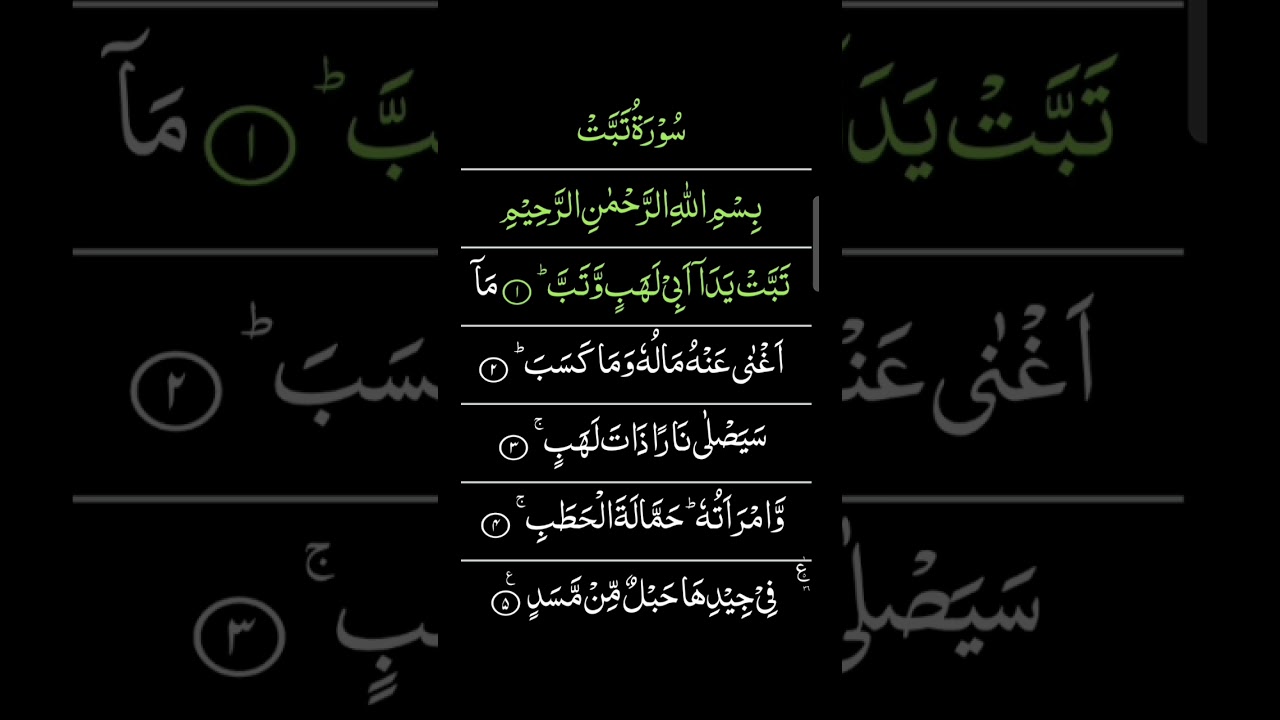 سُوْرَةُ تَبَّتْ
بِسْمِ اللّٰهِ الرَّحْمٰنِ الرَّحِيْمِ
تَبَّتْ يَدَاۤ اَبِیْ لَهَبٍ وَّتَبَّ ؕ ۝۱ مَاۤ
اَغْنٰی عَنْهُ مَالُهٗ وَمَا كَسَبَ ؕ ۝۲
سَيَصْلٰی نَارًا ذَاتَ لَهَبٍ ۚ ۝۳
وَّامْرَاَتُهٗ ؕ حَمَّالَةَ الْحَطَبِ ۚ ۝۴
فِیْ جِيْدِهَا حَبْلٌ مِّنْ مَّسَدٍ ۝۵